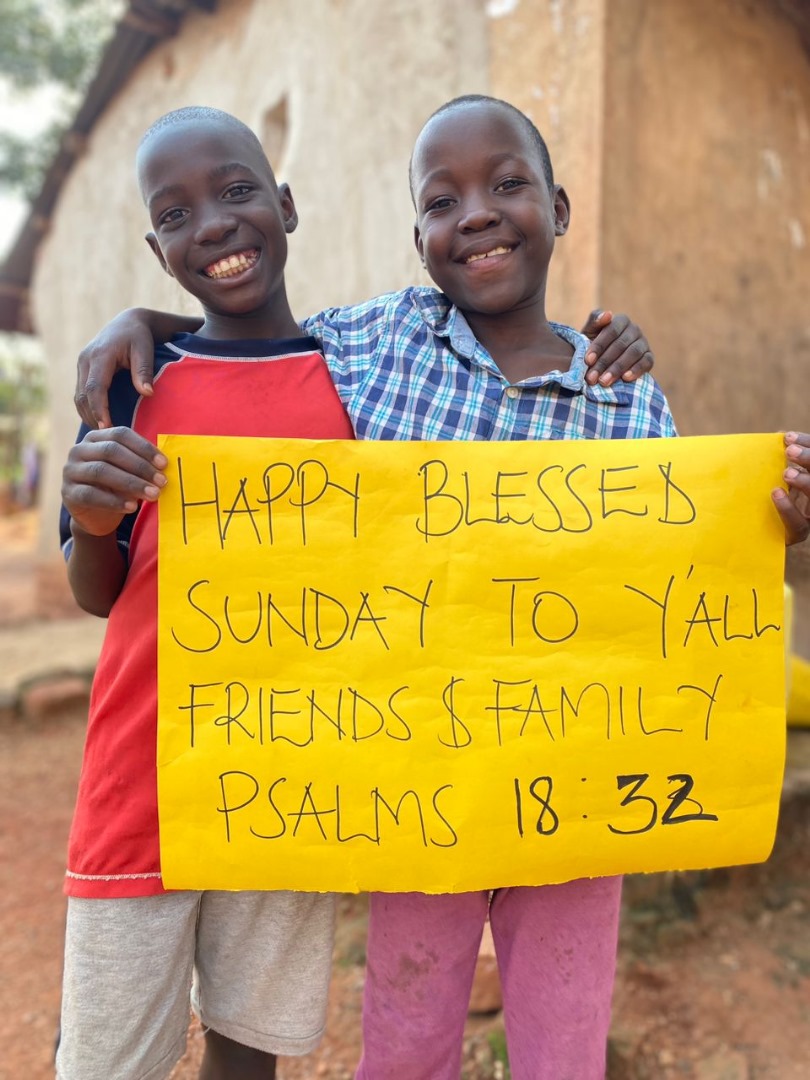 HAPPY BLESSED
SUNDAY TO Y'ALL
FRIENDS $ FAMILY
PSALMS 18:32